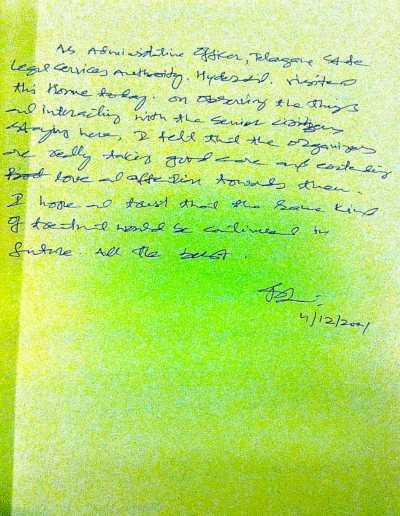 As Administrative Officer, Telangana State
Legal Services Authority, Hyderabad. visited
this Home today. On observing the things
and interacting with the senior citizens
staying here, I felt that the organizers
are really taking good care and extending
love and affection towards them.
I hope and trust that the same kind
of treatment would be continued in
future. All the best.
4/12/2021